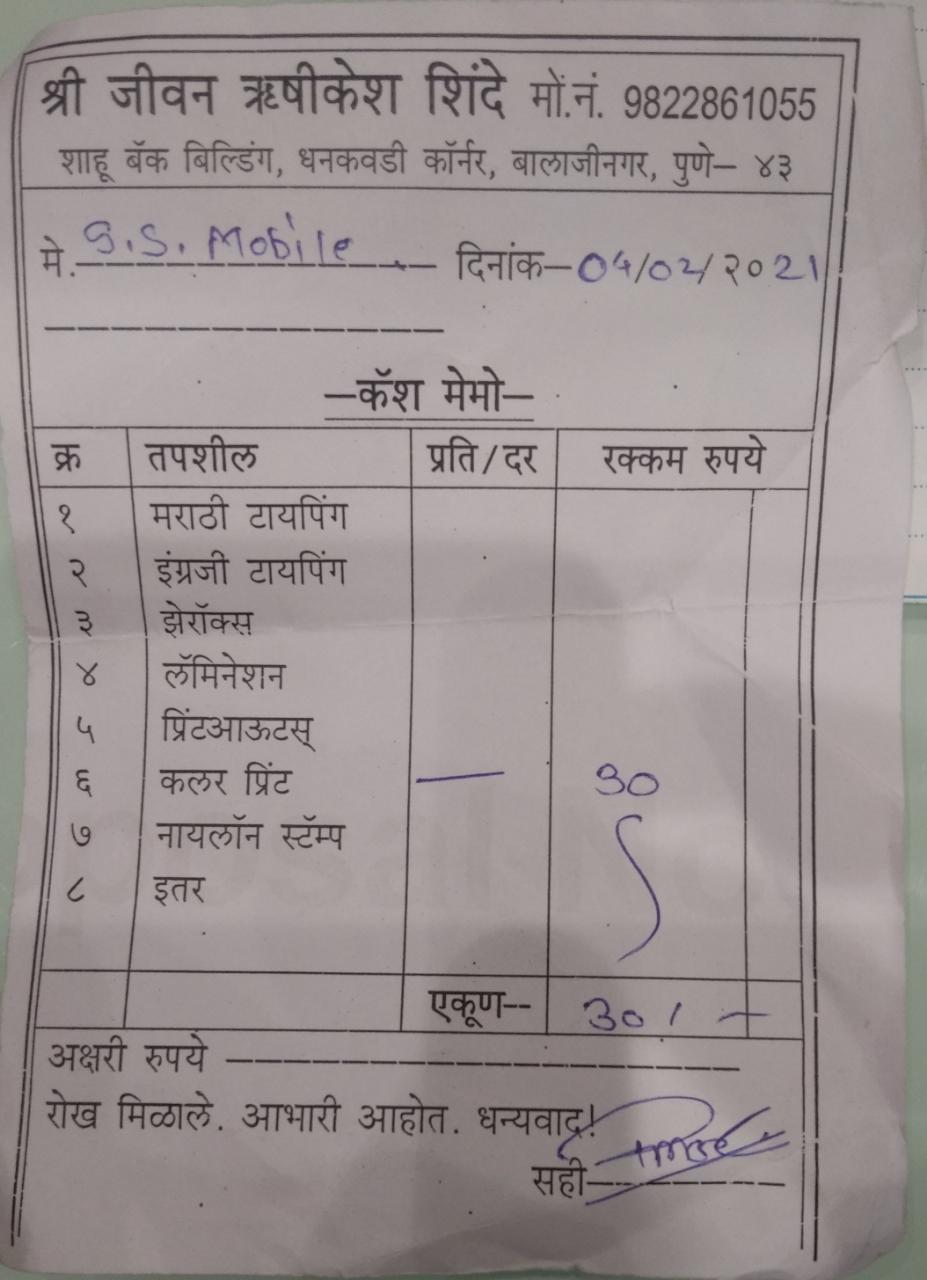 श्री जीवन ऋषीकेश शिंदे मों.नं. 9822861055
शाहू बॅक बिल्डिंग, धनकवडी कॉर्नर, बालाजीनगर, पुणे– ४३
मे. S.S. Mobile दिनांक–04/02/२०21
–कॅश मेमो–
क्र तपशील प्रति/दर रक्कम रुपये
१ मराठी टायपिंग
२ इंग्रजी टायपिंग
३ झेरॉक्स
४ लॅमिनेशन
५ प्रिंटआऊटस्
६ कलर प्रिंट — 30
७ नायलॉन स्टॅम्प
८ इतर
एकूण-- 30/—
अक्षरी रुपये
रोख मिळाले. आभारी आहोत. धन्यवाद!
सही